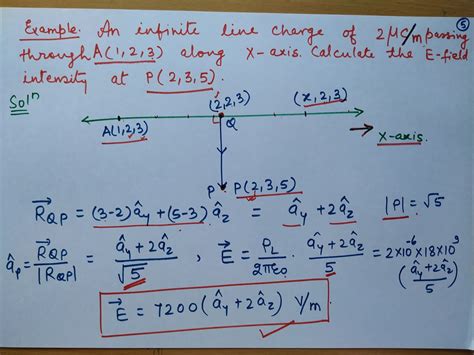 Example. An infinite line charge of 2μC/m passing
5
through A(1,2,3) along X-axis. Calculate the E-field
intensity at P(2,3,5).
Solⁿ
(2,2,3)
(x,2,3)
A(1,2,3)
Q
X-axis.
P
P(2,3,5)
R⃗QP = (3-2)ây + (5-3)âz = ây + 2âz |P| = √5
âρ = R⃗QP/|RQP| = (ây + 2âz)/√5, E⃗ = ρL/2πε₀ · (ây + 2âz)/5 = 2×10⁻⁶×18×10⁹
(ây + 2âz)/5
E⃗ = 7200(ây + 2âz) V/m